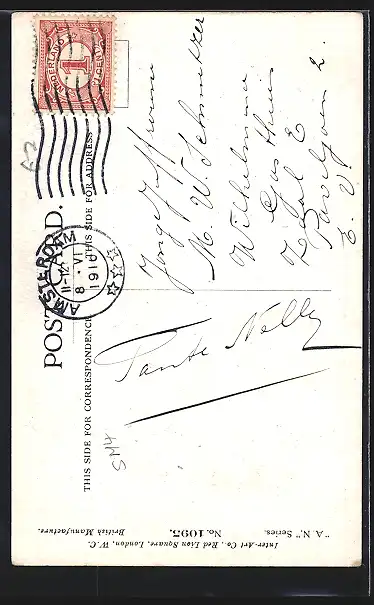 POST CARD.
THIS SIDE FOR CORRESPONDENCE
THIS SIDE FOR ADDRESS
NEDERLAND
1
CENT
AMSTERDAM
11-12
8 · VI
1910
Tante Nelly
Jongejuffrouw
M. W. Schmitzer
Wilhelmina
Gasthuis
Zaal E
Paviljoen 2.
E. V.
SM4
Inter-Art Co., Red Lion Square, London, W.C.
"A.N." Series.
No. 1095.
British Manufacture.